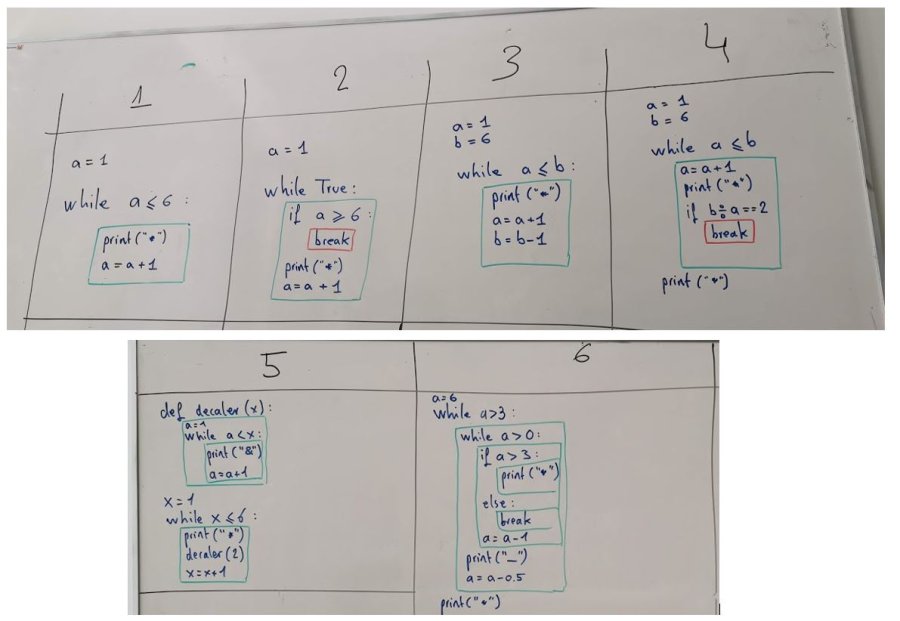 1
a = 1
while a ⩽ 6 :
print("*")
a = a + 1
2
a = 1
while True :
if a ⩾ 6 :
break
print("*")
a = a + 1
3
a = 1
b = 6
while a ⩽ b :
print("*")
a = a+1
b = b-1
4
a = 1
b = 6
while a ⩽ b
a = a+1
print("*")
if b % a == 2
break
print("*")
5
def decaler (x) :
a = 1
while a < x :
print("&")
a = a+1
x = 1
while x ⩽ 6 :
print("*")
decaler (2)
x = x+1
6
a = 6
while a > 3 :
while a > 0 :
if a > 3 :
print("*")
else :
break
a = a - 1
print("_")
a = a - 0.5
print("*")